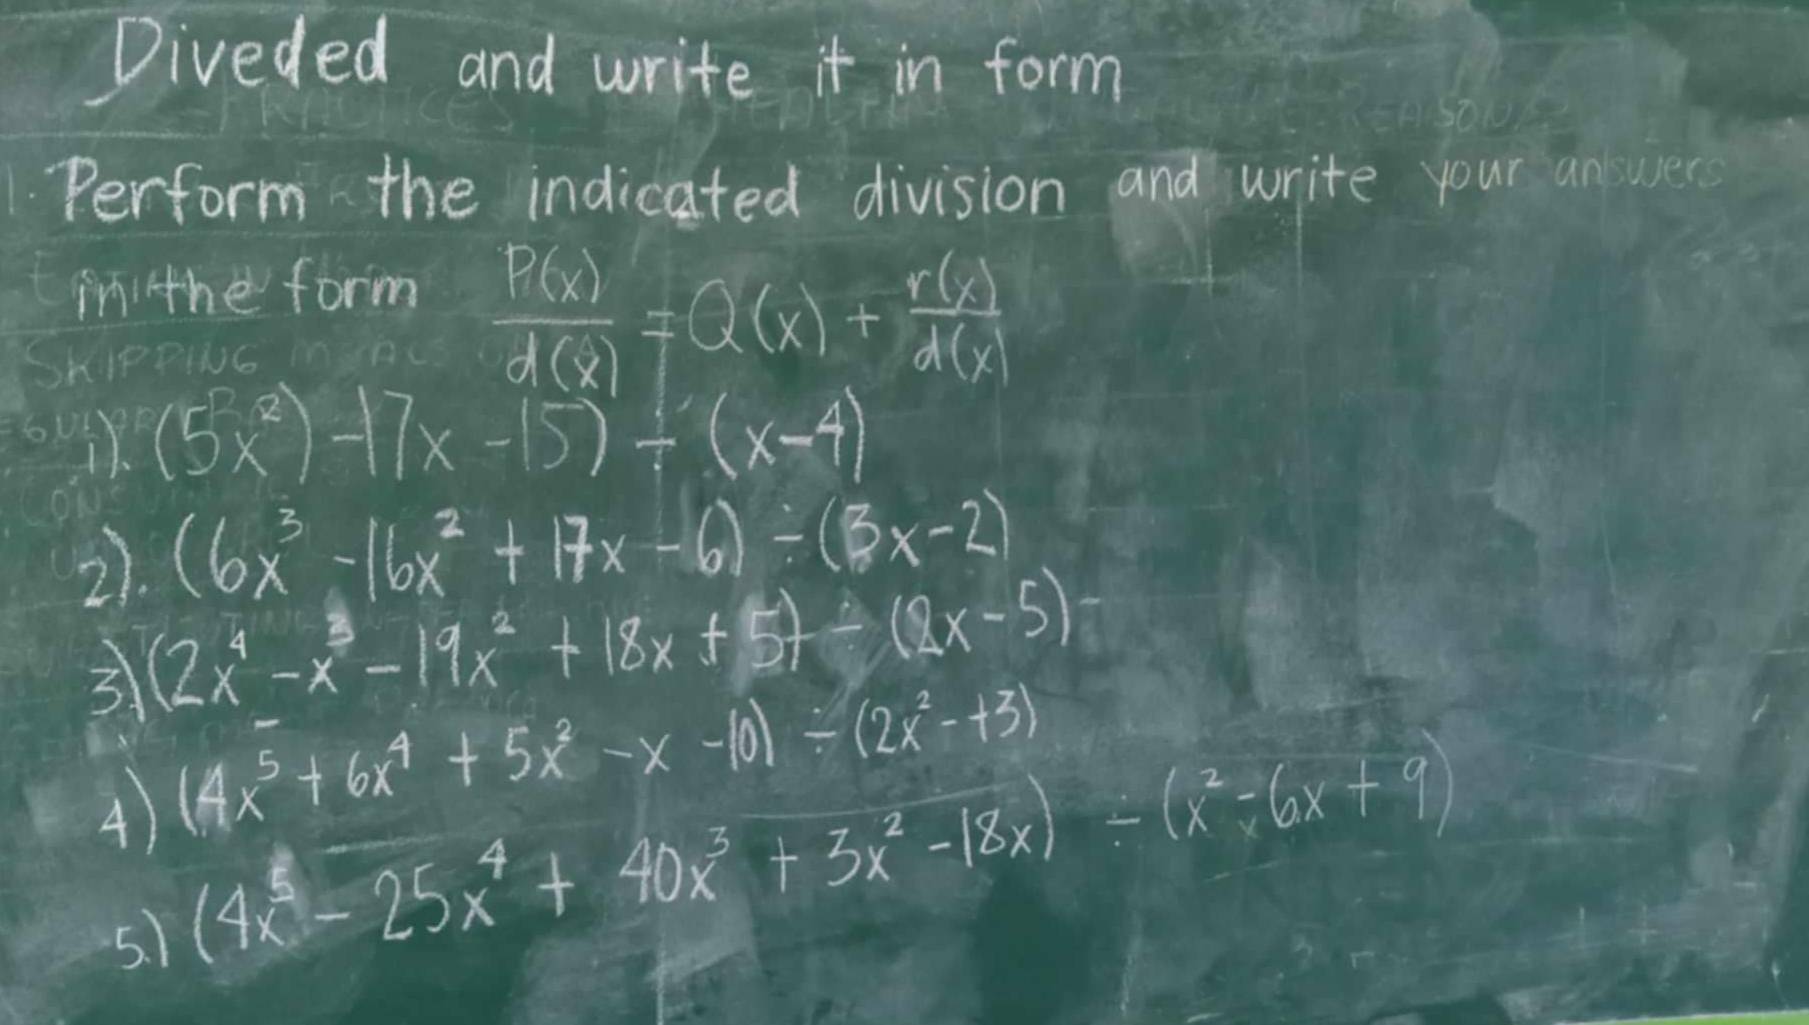 Diveded and write it in form
1. Perform the indicated division and write your answers
in the form P(x)/d(x) = Q(x) + r(x)/d(x)
1). (5x²) -17x -15) ÷ (x-4)
2). (6x³ -16x² + 17x - 6) ÷ (3x-2)
3.) (2x⁴ - x³ - 19x² + 18x + 5) ÷ (2x-5)
4) (4x⁵ + 6x⁴ + 5x² - x -10) ÷ (2x² -+3)
5.) (4x⁵ - 25x⁴ + 40x³ + 3x² -18x) ÷ (x² - 6x + 9)